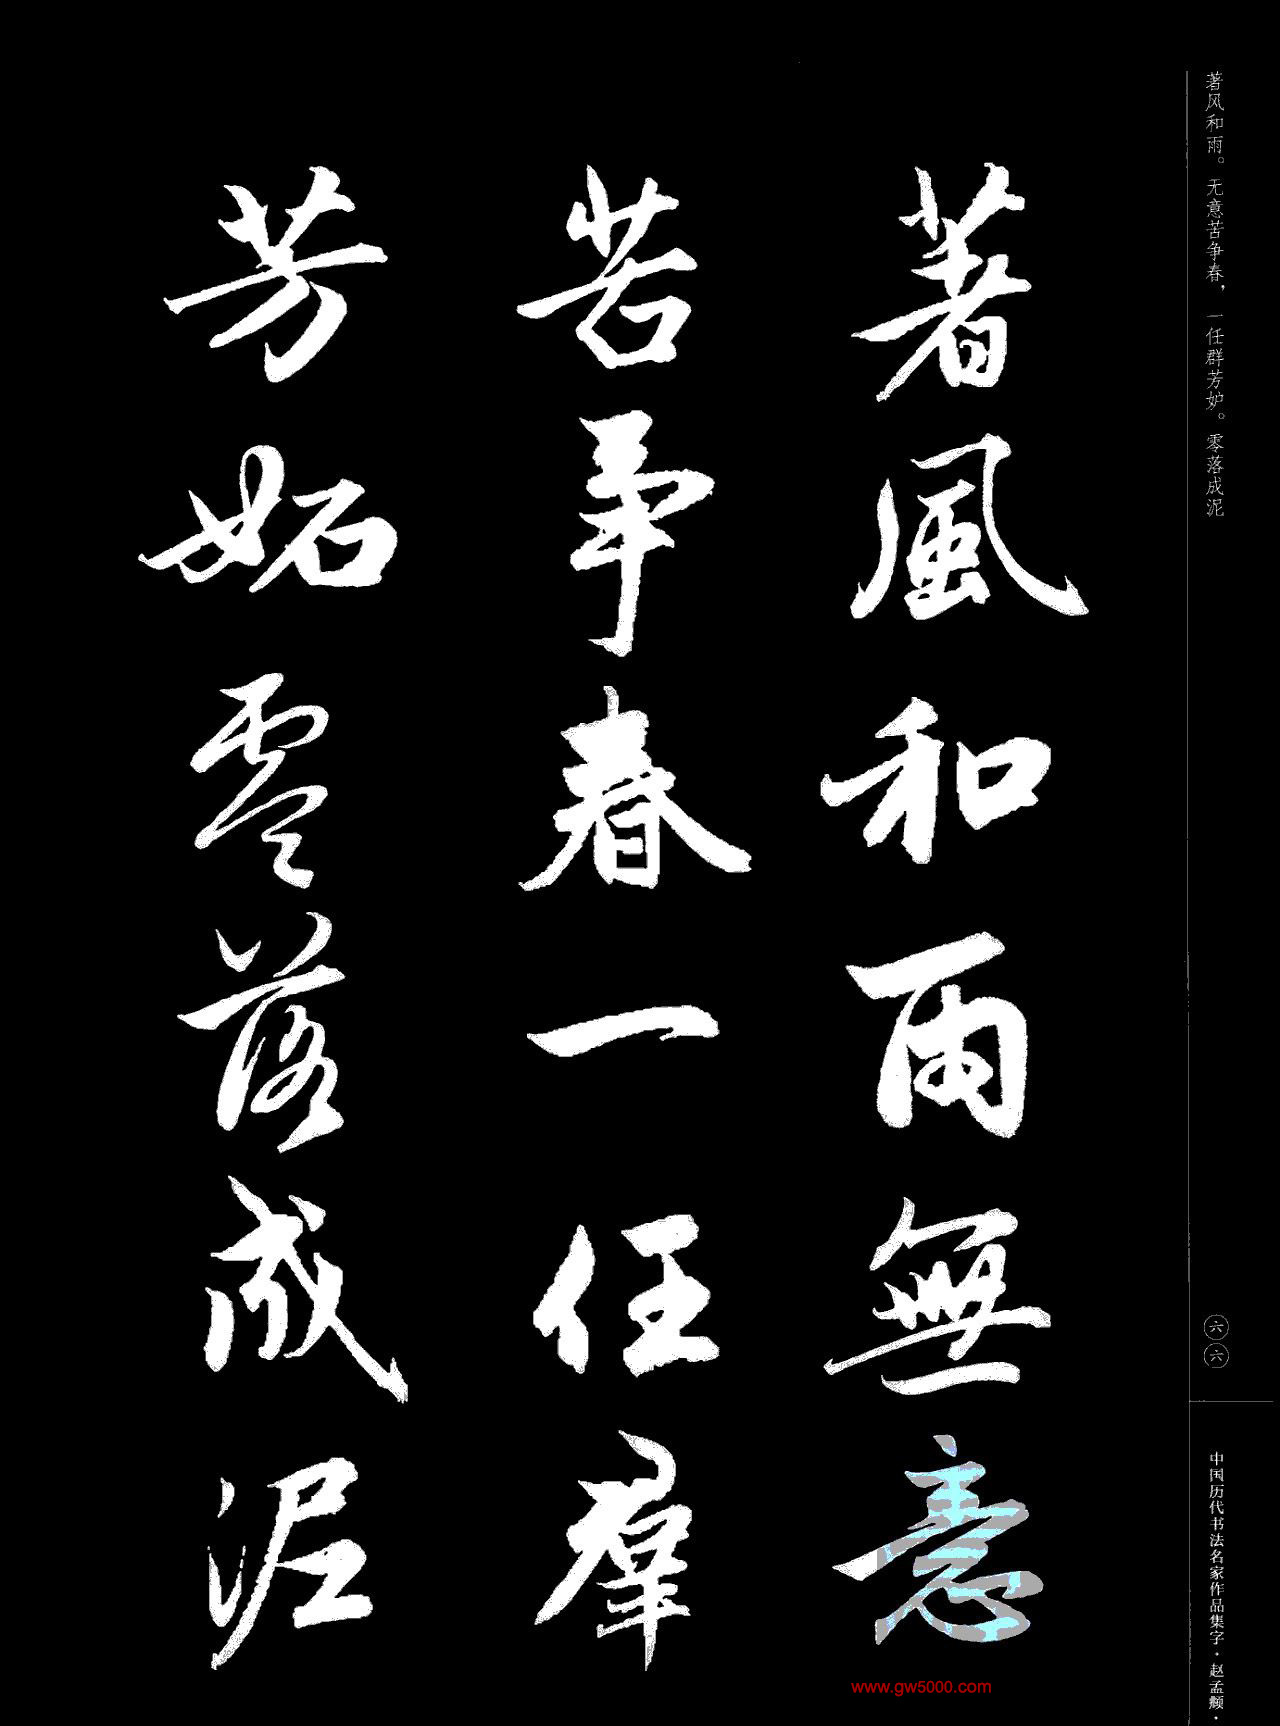 著风和雨。无意苦争春，一任群芳妒。零落成泥
著風和雨無意
苦争春一任羣
芳妬零落成泥
六六
中国历代书法名家作品集字·赵孟頫·
www.gw5000.com